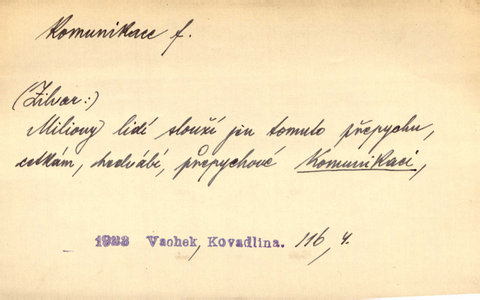 Komunikace f.
(Zilvar:)
Miliony lidí slouží jen tomuto přepychu,
cetkám, hedvábí, přepychové Komunikaci,
1933 Vachek, Kovadlina. 116, 4.